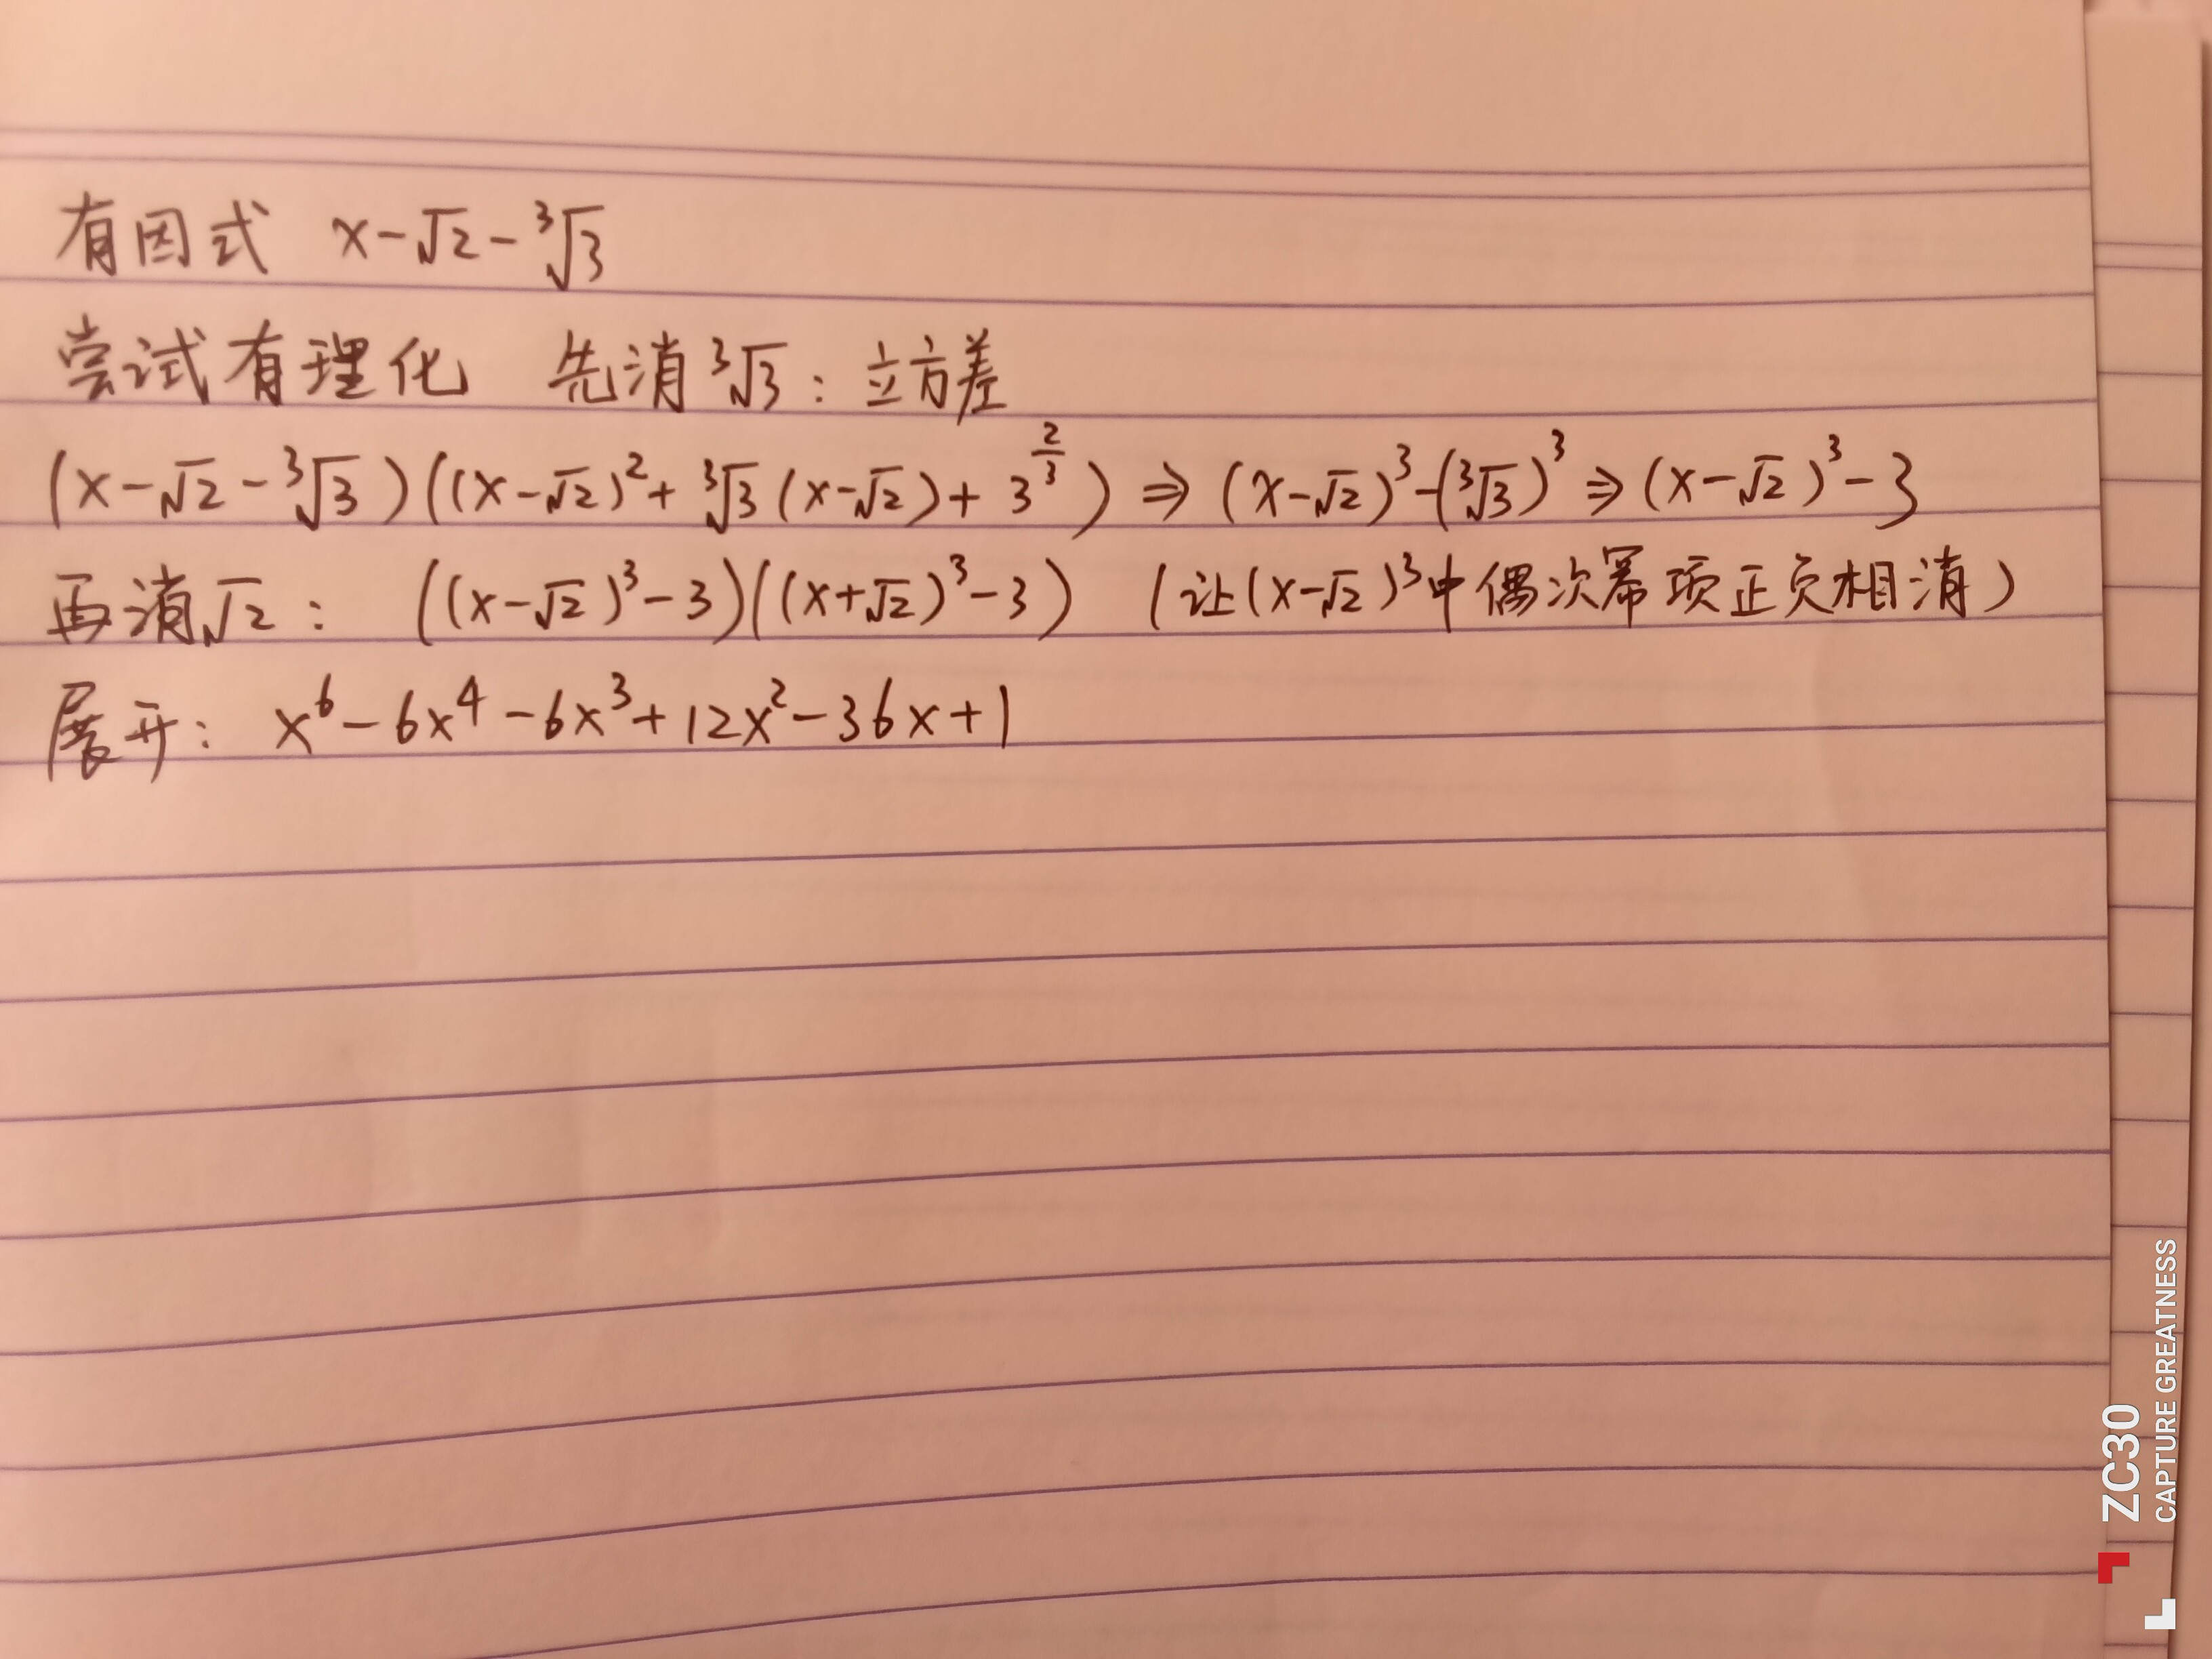 有因式 x-√2-³√3
尝试有理化 先消³√3：立方差
(x-√2-³√3)((x-√2)²+³√3(x-√2)+3^(2/3))⇒(x-√2)³-(³√3)³⇒(x-√2)³-3
再消√2： ((x-√2)³-3)((x+√2)³-3) (让(x-√2)³中偶次幂项正负相消)
展开： x⁶-6x⁴-6x³+12x²-36x+1
ZC30
CAPTURE GREATNESS